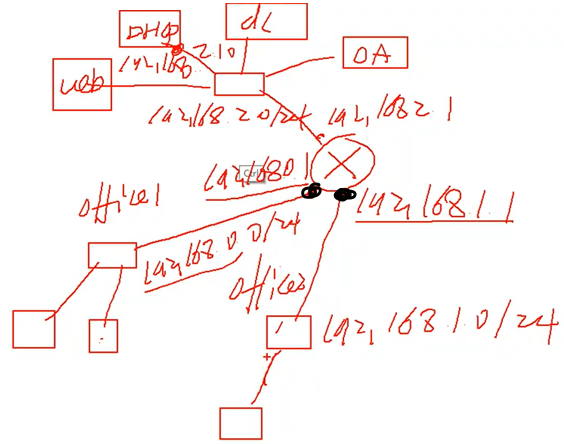 DHCP
dc
OA
web
192,168 2.10
192,168 2 0/24
192, 168 2 1
192,168 0 1
Ctrl
office1
192,168 1 1
192,168 0 0/24
office2
192, 168 1 0/24